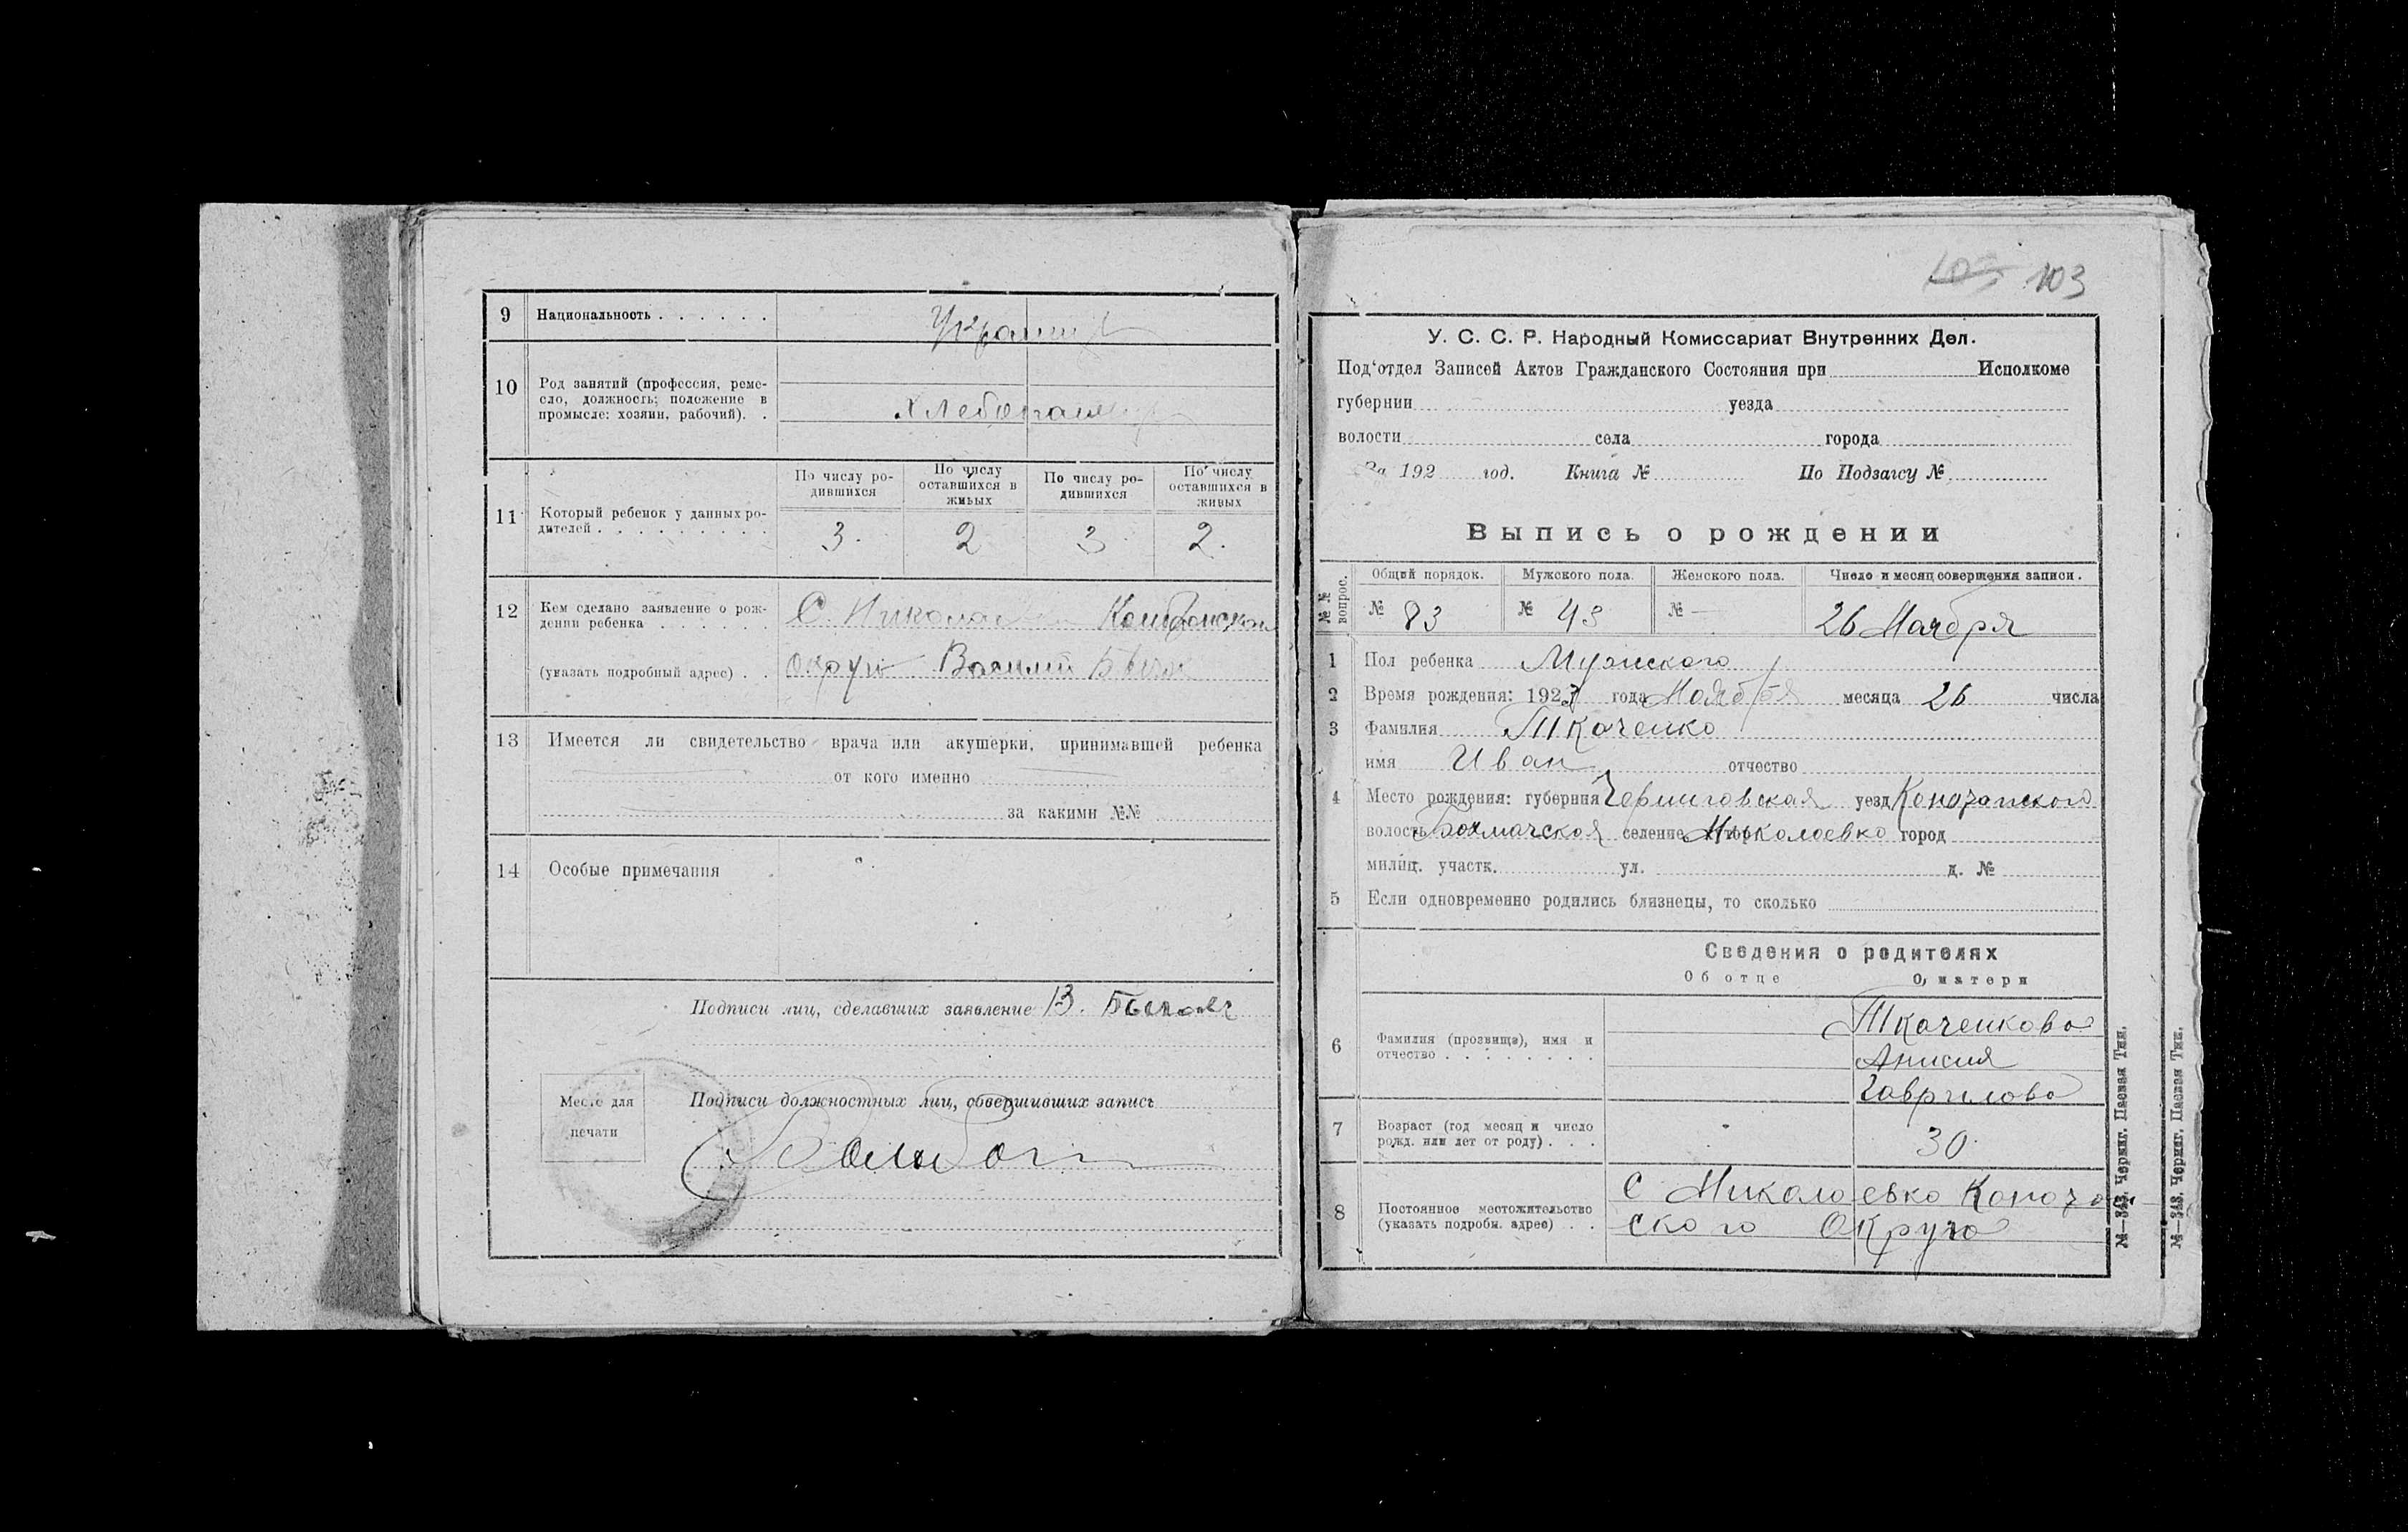 9 Национальность . . . . . .
10 Род занятий (профессия, реме-
сло, должность; положение в
промысле: хозяин, рабочий). .
11 Который ребенок у данных ро-
дителей . . . . . . . . .
По числу ро-
дившихся
По числу
оставшихся в
живых
По числу ро-
дившихся
По числу
оставшихся в
живых
3. 2 3 2.
12 Кем сделано заявление о рож-
дении ребенка . . . . . . .
(указать подробный адрес) . .
С.
Василий
13 Имеется ли свидетельство врача или акушерки, принимавшей ребенка
от кого именно
за какими №№
14 Особые примечания
Подписи лиц, сделавших заявление В.
Место для
печати
Подписи должностных лиц, совершивших запись
103
У. С. С. Р. Народный Комиссариат Внутренних Дел.
Под‘отдел Записей Актов Гражданского Состояния при Исполкоме
губернии уезда
волости села города
За 192 год. Книга № По Подзагсу №
Выпись о рождении
№№ вопрос.
Общий порядок. Мужского пола. Женского пола. Число и месяц совершения записи.
№ 83 № 43 № — 26 Ноября
1 Пол ребенка Мужского
2 Время рождения: 192 года Ноября месяца 26 числа
3 Фамилия Ткаченко
имя Иван отчество
4 Место рождения: губерния Черниговская уезд Конотопского
волость Бахмачская селение Николаевка город
милиц. участк. ул. д. №
5 Если одновременно родились близнецы, то сколько
Сведения о родителях
Об отце О матери
6 Фамилия (прозвище), имя и
отчество . . . . . . . .
Ткаченкова
Анисия
Гаврилова
7 Возраст (год месяц и число
рожд. или лет от роду) . . .
30
8 Постоянное местожительство
(указать подробн. адрес) . .
С Николаевка Коното
ского Округа
М—343. Черниг. Паевая Тип.
М—343. Черниг. Паевая Тип.